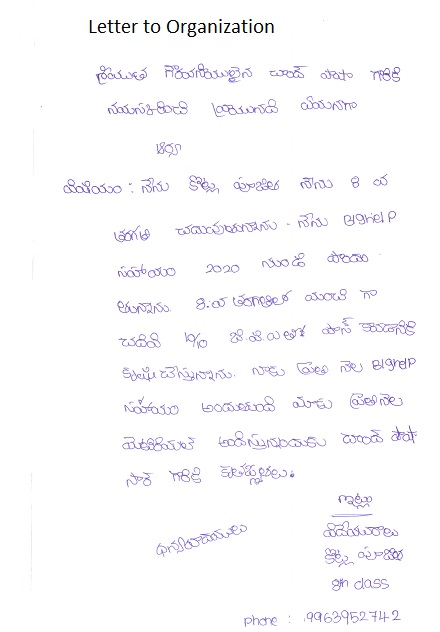 Letter to Organization
శ్రీయుత గౌరవనీయులైన చాంద్ పాషా గారికి
నమస్కరించి వ్రాయునది ఏమనగా
ఆర్యా
విషయం : నేను కొట్ల పూజిత నేను 8 వ
తరగతి చదువుతున్నాను - నేను BigHelP
సహాయం 2020 నుండి పొందు
తున్నాను. 8.వ తరగతిలో మంచి గా
చదివి 10/10 జి.పి.ఎ తో పాస్ కావడానికి
కృషి చేస్తున్నాను. నాకు ప్రతి నెల BigHelP
సహాయం అందుతుంది మాకు ప్రతినెల
మెటీరియల్ అందిస్తున్నందుకు చాంద్ పాషా
సార్ గారికి కృతజ్ఞతలు.
ఇట్లు
ధన్యవాదములు
విధేయురాలు
కొట్ల పూజిత
8th class
phone : 9963952742